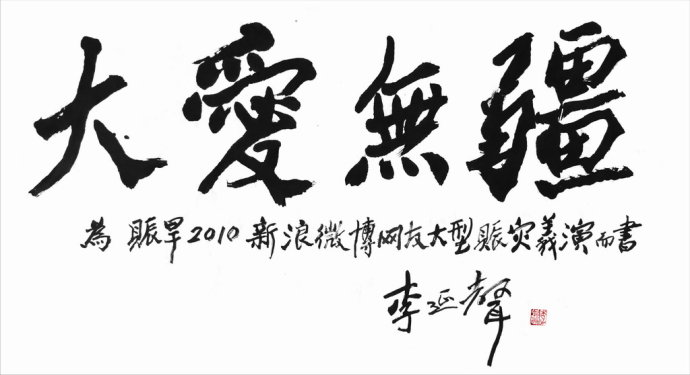 大愛無疆
為賑旱2010新浪微博网友大型賑灾義演而書
李延聲